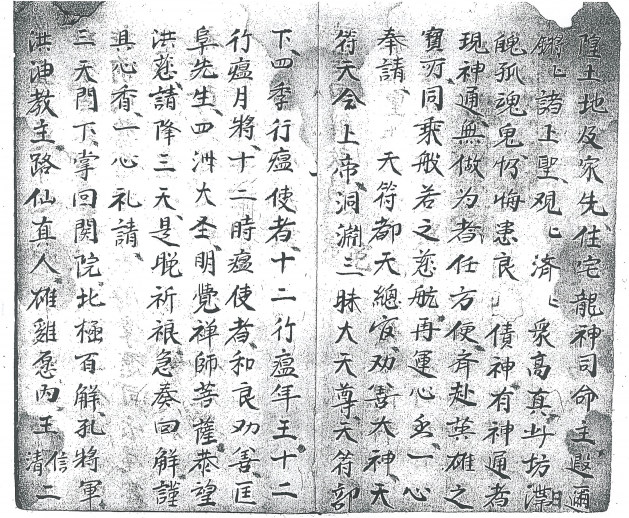 隍土地及家先住宅龍神司命主殿通
鏘〻諸上聖觀〻濟〻衆高真此坊漂
魄孤魂鬼恓悔患良 債神有神通者
現神通無做為者任方便斉赴英雄之
寳可同乘般若之慈航再運心丞一心
奉請 天符都天總官劝善大神天
符天令上帝洞淵三昧大天尊天符部
下四季行瘟使者十二行瘟年王十二
行瘟月將十二時瘟使者和良劝善匡
阜先生四洲大圣明覺禅師菩薩恭望
洪慈請降三天是脱祈禳急奏回解謹
具心香一心礼請
三天門下掌回関院北極百解孔將軍
洪油教主路仙真人雄雞愿內王信清二